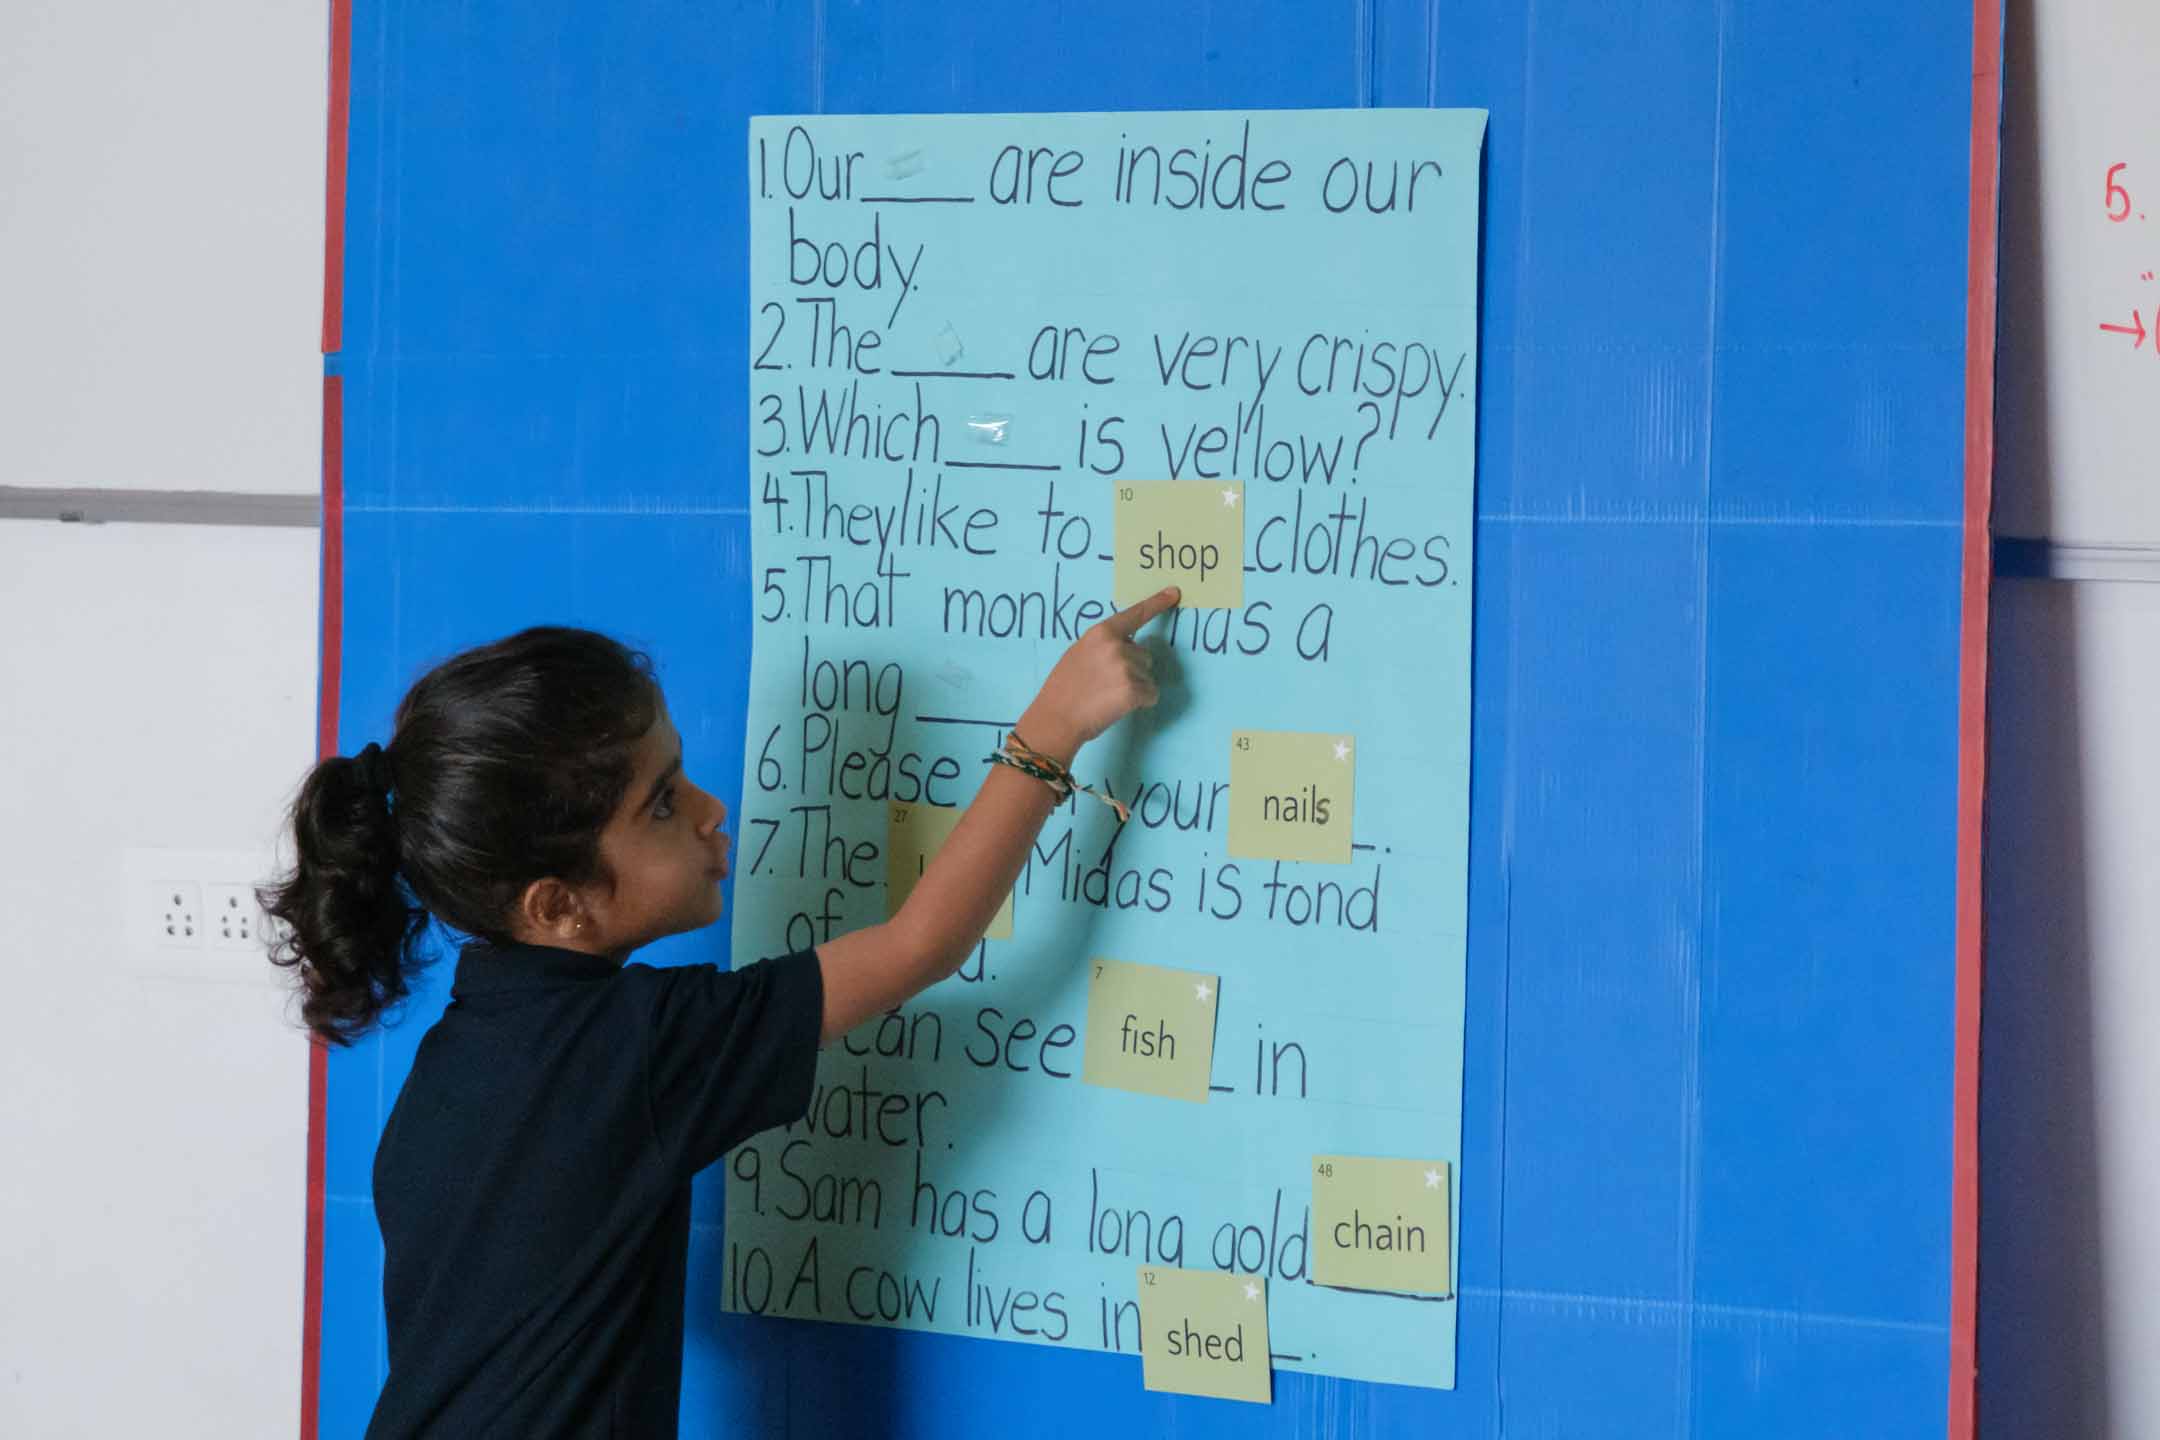 1. Our ____ are inside our
body.
2. The ____ are very crispy.
3. Which ____ is yellow?
4. They like to 10 shop clothes.
5. That monkey has a
long ____
6. Please your 43 nails.
7. The 27 Midas is fond
of
can see 7 fish in
water.
9. Sam has a long gold 48 chain
10. A cow lives in 12 shed.
5.